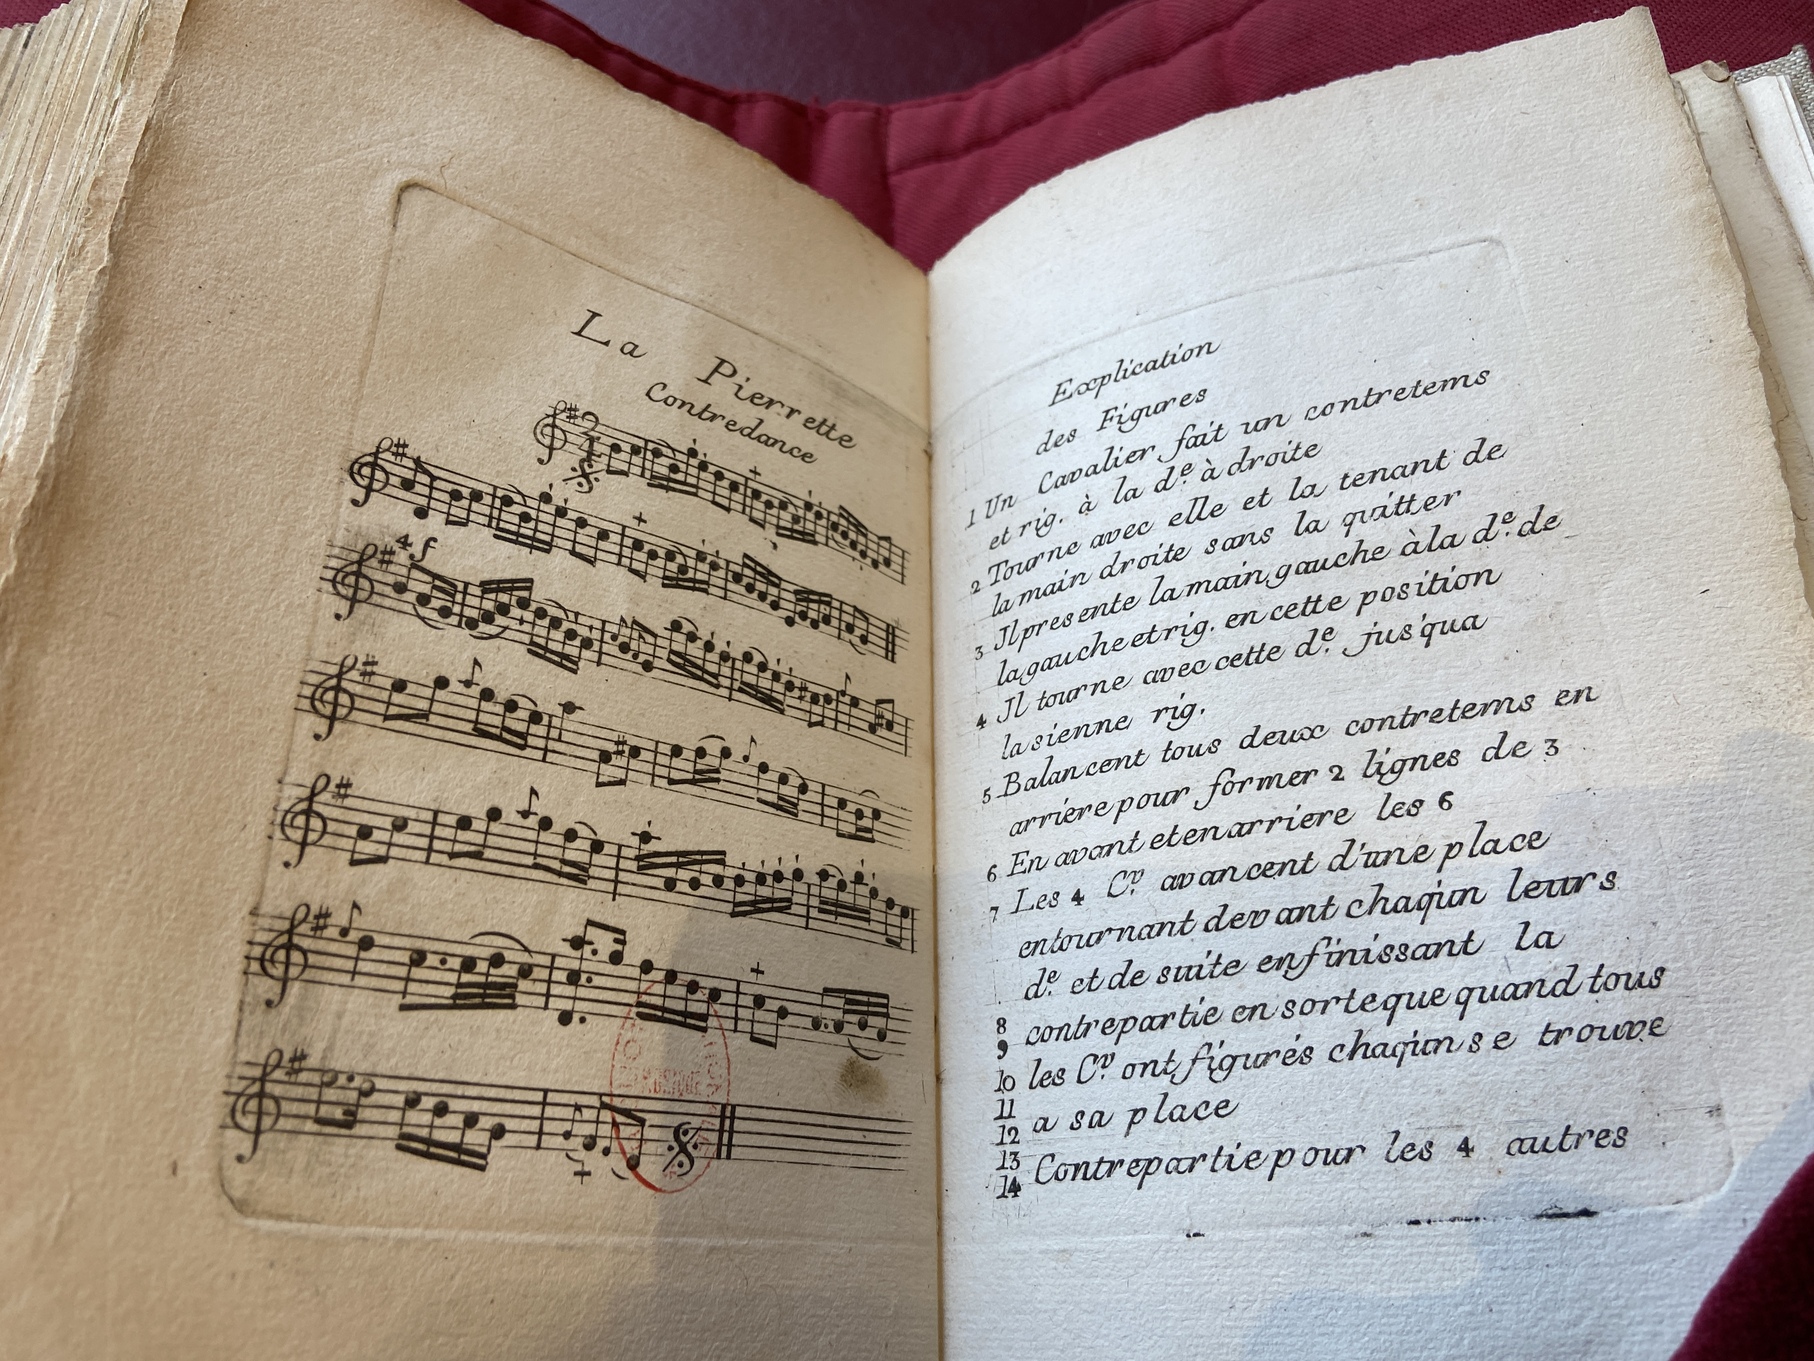 La Pierrette
Contredance
2
4
4 f
Explication
des Figures
1 Un Cavalier fait un contretems
et rig. à la de. à droite
2 Tourne avec elle et la tenant de
la main droite sans la quitter
3 Il presente la main gauche à la de. de
la gauche et rig. en cette position
4 Il tourne avec cette de. jus'qua
la sienne rig.
5 Balancent tous deux contretems en
arriére pour former 2 lignes de 3
6 En avant et en arriere les 6
7 Les 4 Cv. avancent d'une place
entournant devant chaqun leurs
de. et de suite enfinissant la
8 contrepartie en sorte que quand tous
9
10 les Cv. ont figurés chaqun se trouve
11 a sa place
12
13 Contrepartie pour les 4 autres
14